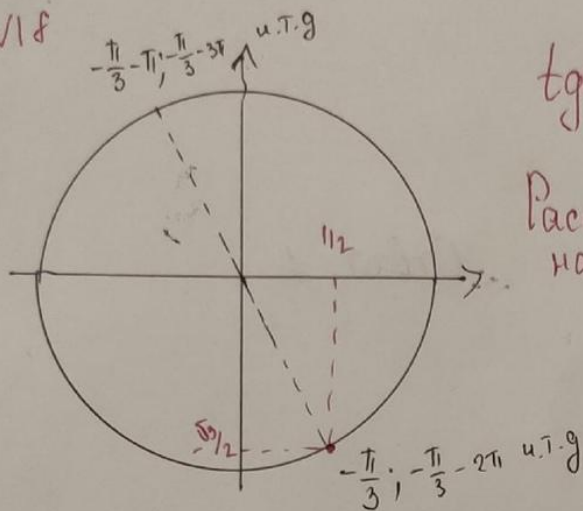 √18
-π/3 - π; -π/3 - 3π и.т.д
tg
Рас
1/2
но
-√3/2
-π/3; -π/3 - 2π и.т.д